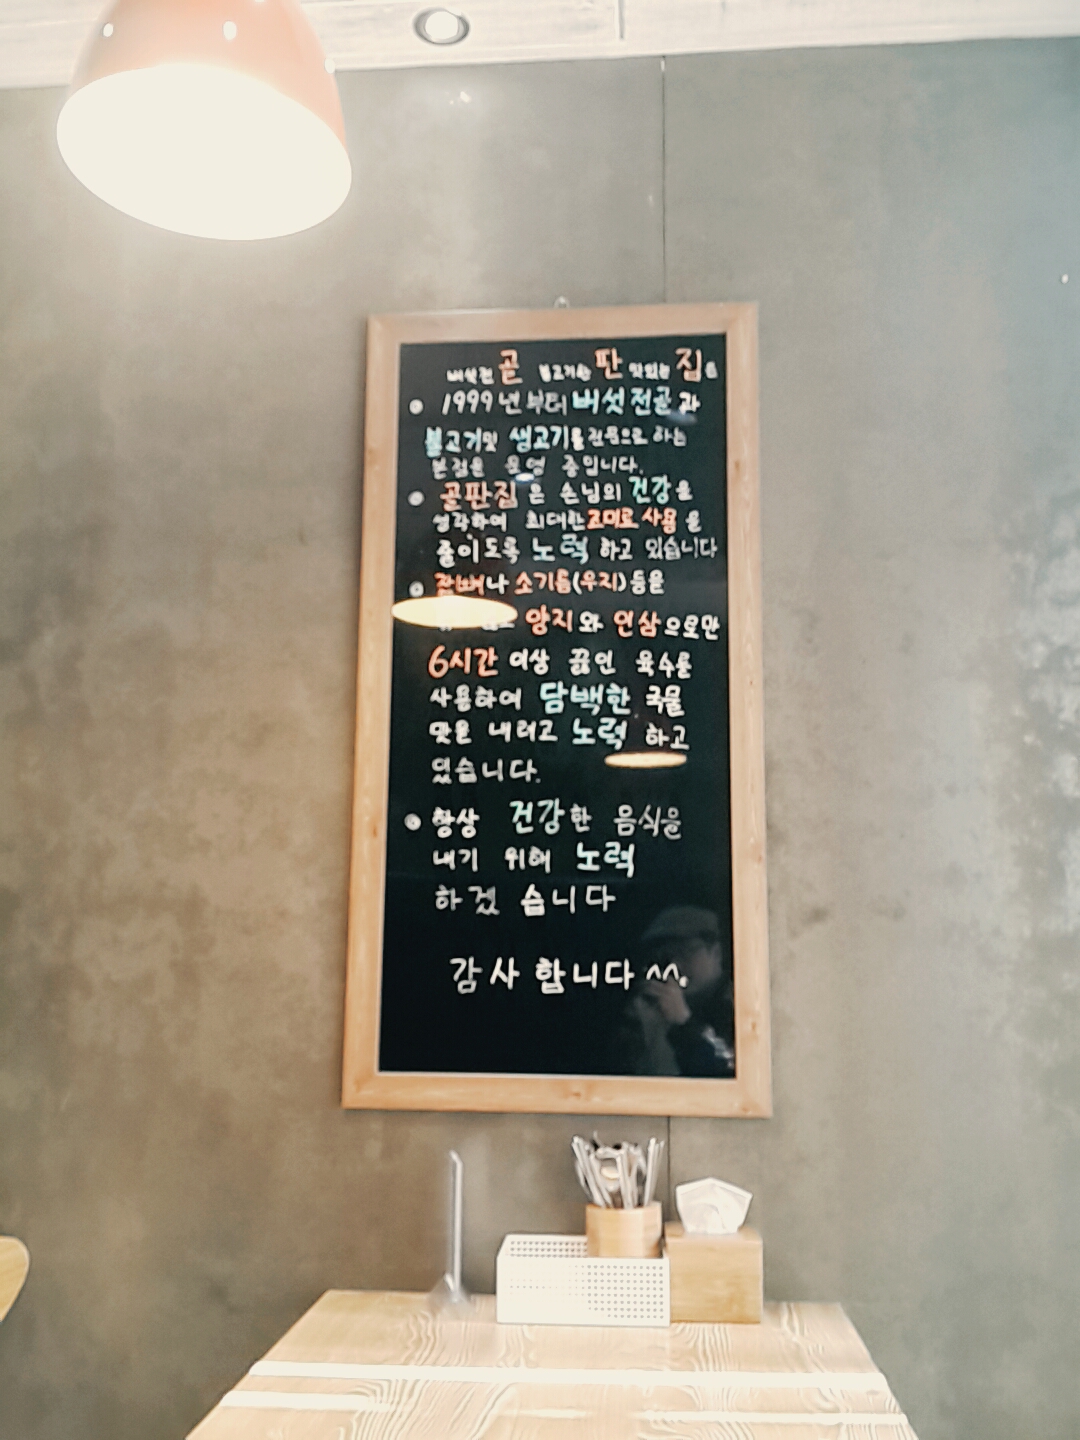 버섯전골 불고기판 맛있는 집은
1999년 부터 버섯전골과
불고기및 생고기를 전문으로 하는
본점을 운영 중입니다.
골판집은 손님의 건강을
생각하여 최대한 조미료 사용을
줄이도록 노력 하고 있습니다
잡뼈나 소기름(우지)등을
양지와 인삼으로만
6시간 이상 끓인 육수를
사용하여 담백한 국물
맛을 내려고 노력 하고
있습니다.
항상 건강한 음식을
내기 위해 노력
하겠습니다
감사합니다 ^^.